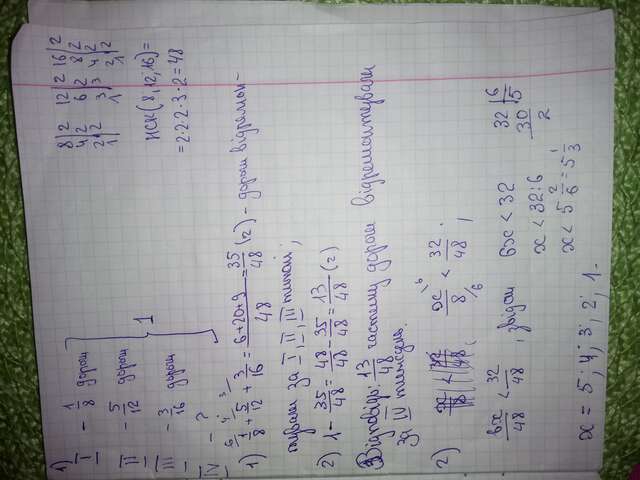 1)
I - 1/8 дороги
II - 5/12 дороги } 1
III - 3/16 дороги
IV - ?
8|2 12|2 16|2
4|2 6|2 8|2
2|2 3|3 4|2
1| 1 2|2
1
НСК(8,12,16)=
=2·2·2·3·2=48
1) 1/8 + 5/12 + 3/16 = 6+20+9/48 = 35/48 (г) - дороги відремон-
тували за I, II, III тижні;
2) 1 - 35/48 = 48/48 - 35/48 = 13/48 (г)
Відповідь: 13/48 частину дороги відремонтували
за IV тиждень.
2) x/8 < 32/48 ;
6x/48 < 32/48 , звідси 6x < 32
x < 32:6
x < 5 2/6 = 5 1/3
32|6
30|5
2
x = 5; 4; 3; 2; 1.